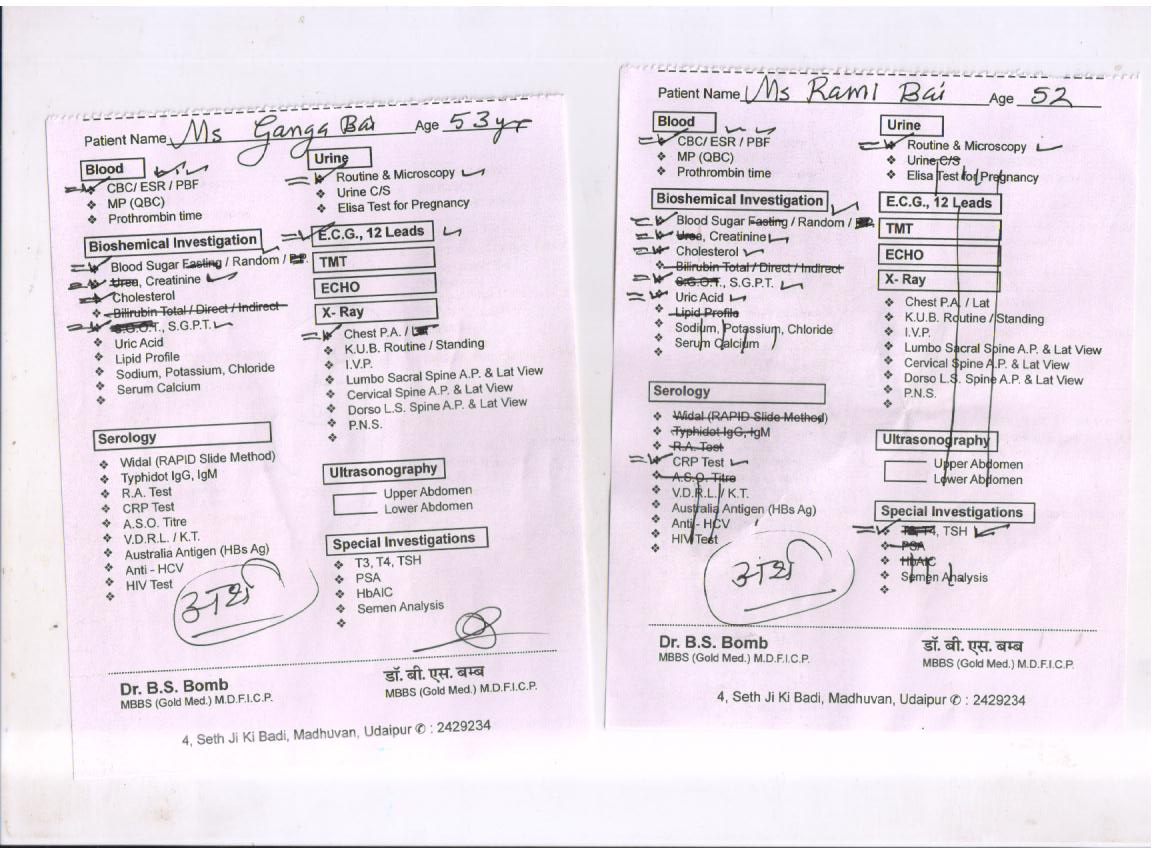 Patient Name Ms Ganga Bai Age 53 yr
Blood
CBC/ ESR / PBF
MP (QBC)
Prothrombin time
Bioshemical Investigation
Blood Sugar Fasting / Random /
Urea, Creatinine
Cholesterol
Bilirubin Total / Direct / Indirect
S.G.O.T., S.G.P.T.
Uric Acid
Lipid Profile
Sodium, Potassium, Chloride
Serum Calcium
Serology
Widal (RAPID Slide Method)
Typhidot IgG, IgM
R.A. Test
CRP Test
A.S.O. Titre
V.D.R.L. / K.T.
Australia Antigen (HBs Ag)
Anti - HCV
HIV Test
Urine
Routine & Microscopy
Urine C/S
Elisa Test for Pregnancy
E.C.G., 12 Leads
TMT
ECHO
X- Ray
Chest P.A. /
K.U.B. Routine / Standing
I.V.P.
Lumbo Sacral Spine A.P. & Lat View
Cervical Spine A.P. & Lat View
Dorso L.S. Spine A.P. & Lat View
P.N.S.
Ultrasonography
Upper Abdomen
Lower Abdomen
Special Investigations
T3, T4, TSH
PSA
HbAIC
Semen Analysis
Dr. B.S. Bomb
MBBS (Gold Med.) M.D.F.I.C.P.
डॉ. बी. एस. बम्ब
MBBS (Gold Med.) M.D.F.I.C.P.
4, Seth Ji Ki Badi, Madhuvan, Udaipur ✆ : 2429234
Patient Name Ms Rami Bai Age 52
Blood
CBC/ ESR / PBF
MP (QBC)
Prothrombin time
Bioshemical Investigation
Blood Sugar Fasting / Random /
Urea, Creatinine
Cholesterol
Bilirubin Total / Direct / Indirect
S.G.O.T., S.G.P.T.
Uric Acid
Lipid Profile
Sodium, Potassium, Chloride
Serum Calcium
Serology
Widal (RAPID Slide Method)
Typhidot IgG, IgM
R.A. Test
CRP Test
A.S.O. Titre
V.D.R.L. / K.T.
Australia Antigen (HBs Ag)
Anti - HCV
HIV Test
Urine
Routine & Microscopy
Urine C/S
Elisa Test for Pregnancy
E.C.G., 12 Leads
TMT
ECHO
X- Ray
Chest P.A. / Lat
K.U.B. Routine / Standing
I.V.P.
Lumbo Sacral Spine A.P. & Lat View
Cervical Spine A.P. & Lat View
Dorso L.S. Spine A.P. & Lat View
P.N.S.
Ultrasonography
Upper Abdomen
Lower Abdomen
Special Investigations
T3, T4, TSH
PSA
HbAIC
Semen Analysis
Dr. B.S. Bomb
MBBS (Gold Med.) M.D.F.I.C.P.
डॉ. बी. एस. बम्ब
MBBS (Gold Med.) M.D.F.I.C.P.
4, Seth Ji Ki Badi, Madhuvan, Udaipur ✆ : 2429234